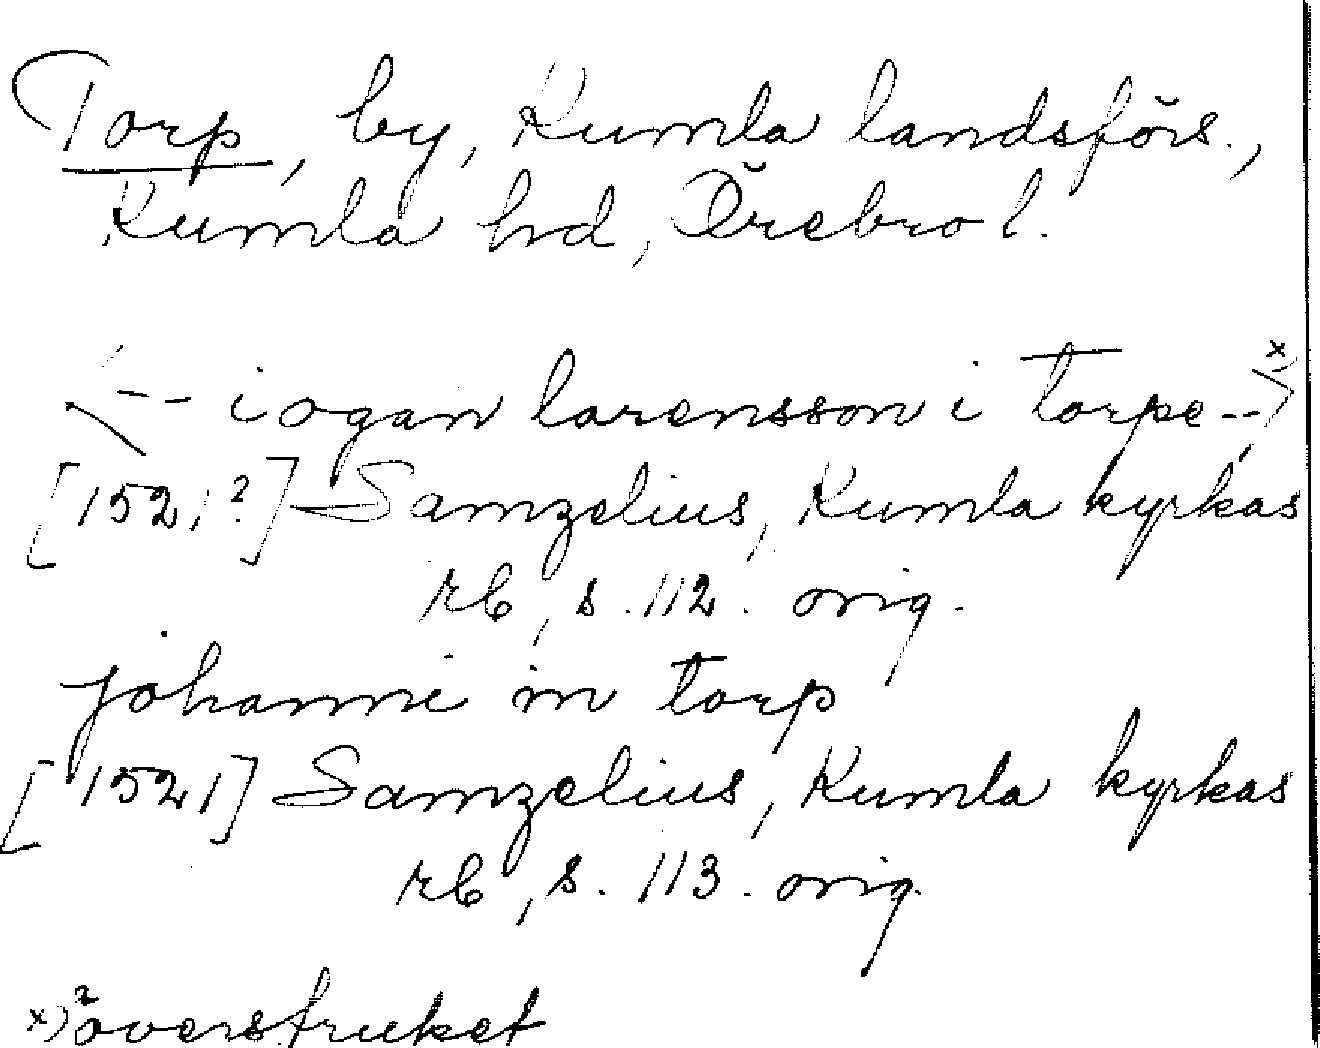 Torp, by, Kumla landsförs.,
Kumla hd, Örebro l.
<-- iogan larensson i torpe --> x)
[1521?] Samzelius, Kumla kyrkas
rb, s. 112. orig.
johanni in torp
[1521] Samzelius, Kumla kyrkas
rb, s. 113. orig.
x) överstruket